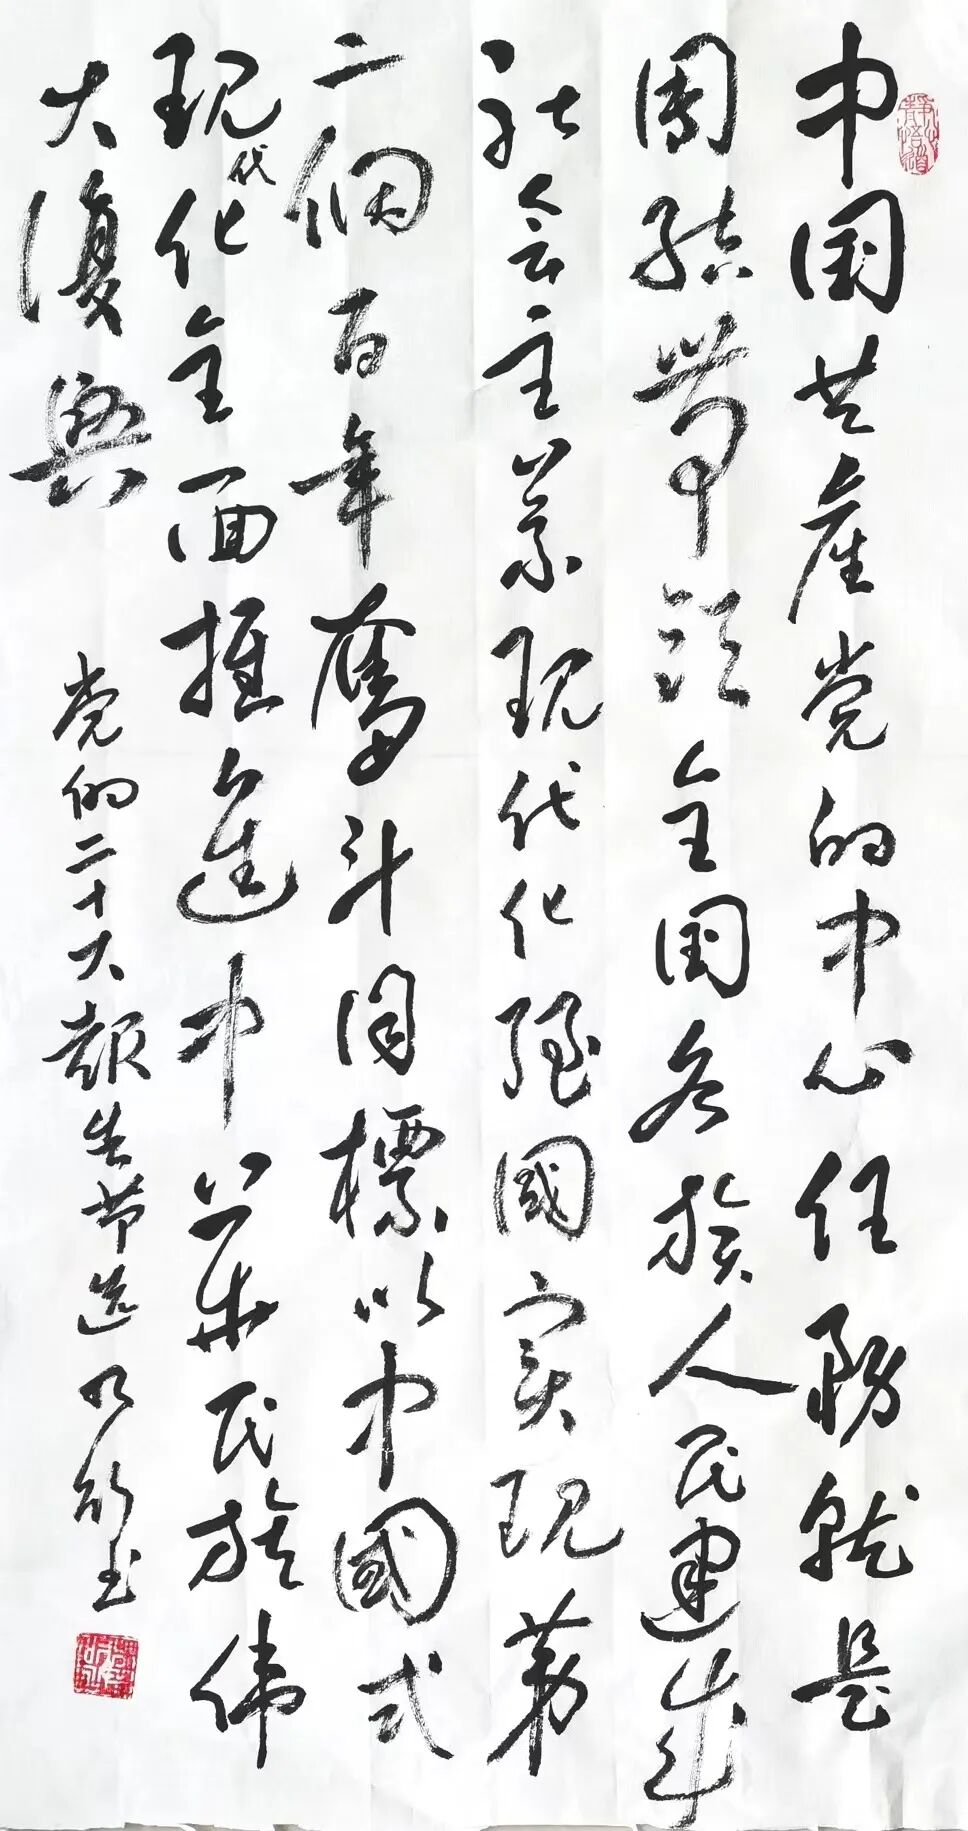 中国共产党的中心任务就是
團结带领全国各族人民建成
社会主义现代化强國实现第
二個百年奮斗目標以中國式
现代化全面推進中华民族伟
大復興
党的二十大报告节选
静心悟道